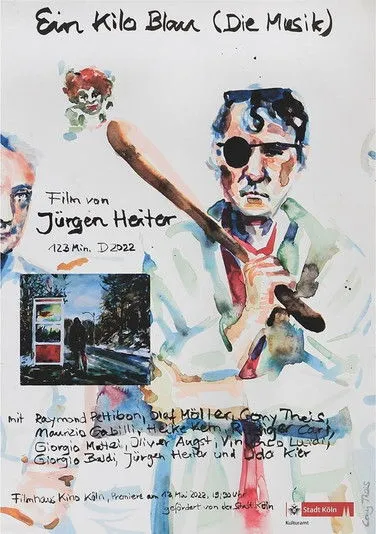 Ein Kilo Blau (Die Musik)
Film von
Jürgen Heiter
123 Min. D 2022
mit Raymond Pettibon, Olaf Möller, Cony Theis,
Maurizio Gabilli, Heike Kern, Rüdiger Carl,
Giorgio Mattei, Oliver Augst, Vincenzo Luidi,
Giorgio Baldi, Jürgen Heiter und Udo Kier
Filmhaus Kino Köln, Premiere am 13 Mai 2022, 19,30 Uhr
gefördert von der Stadt Köln
Stadt Köln
Kulturamt
Cony Theis